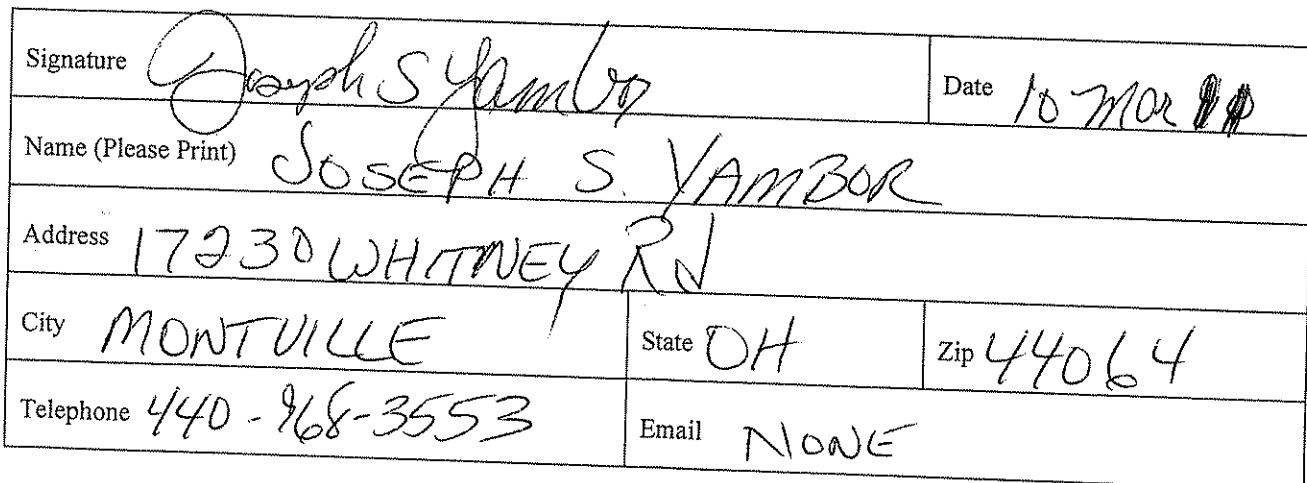 Signature Joseph S Yambor Date 10 Mar
Name (Please Print) JOSEPH S. YAMBOR
Address 17230 WHITNEY Rd
City MONTVILLE State OH Zip 44064
Telephone 440-968-3553 Email NONE